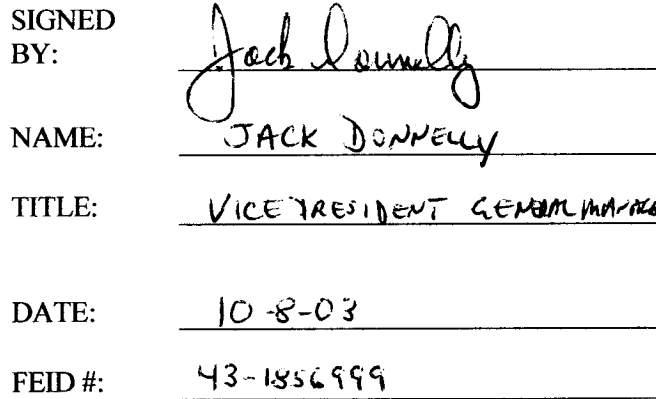 SIGNED
BY: Jack Donnelly
NAME: JACK DONNELLY
TITLE: VICE PRESIDENT GENERAL MANAGE
DATE: 10-8-03
FEID #: 43-1856999